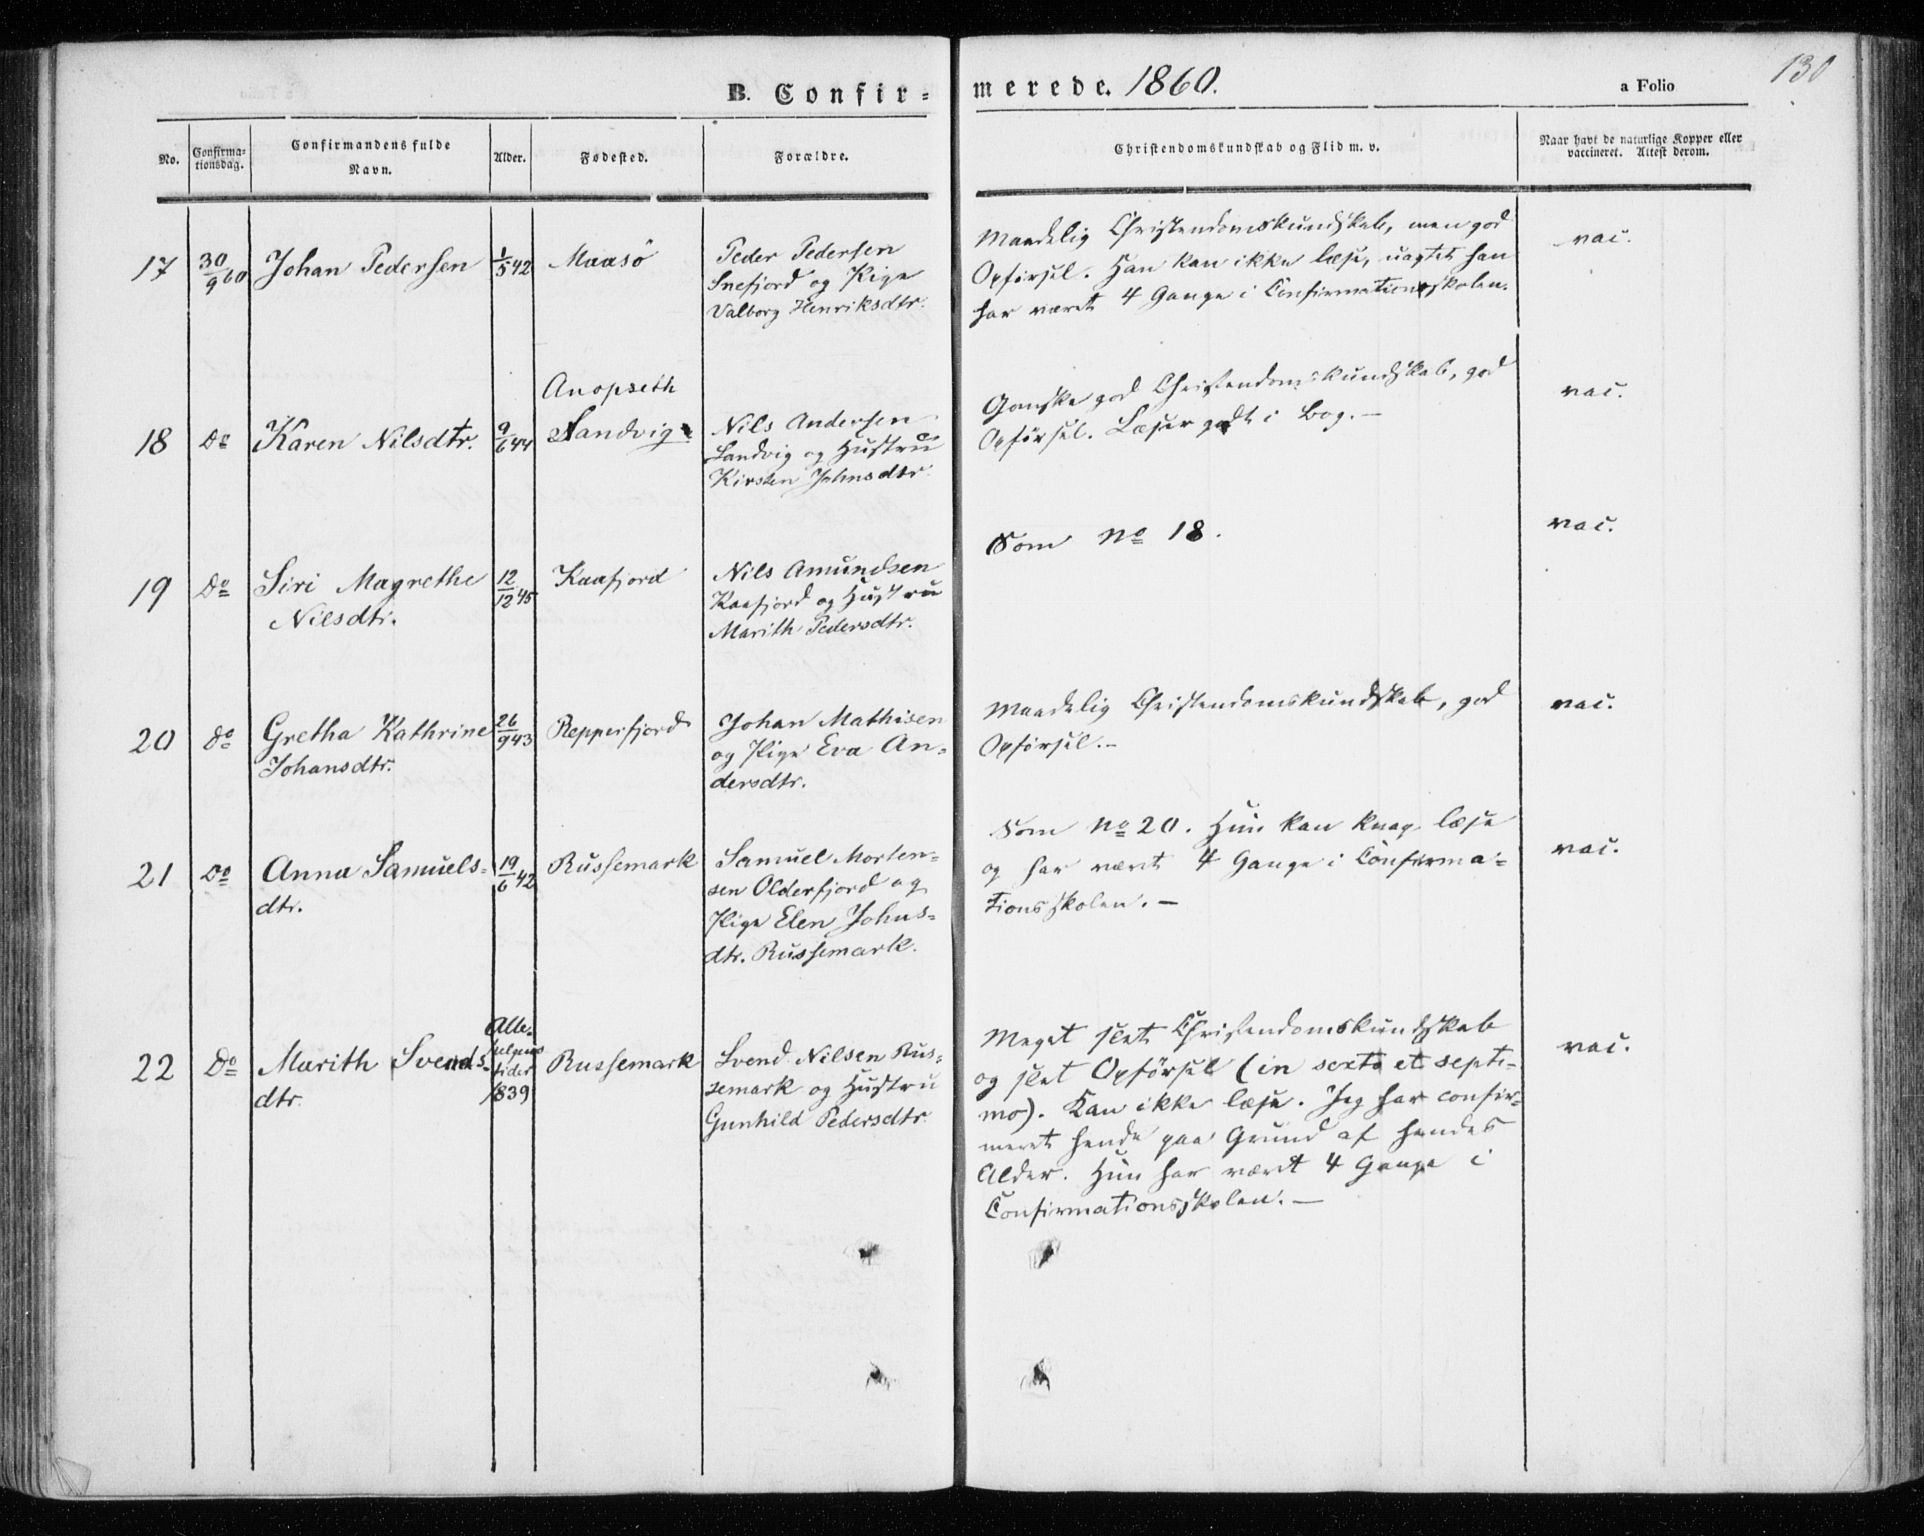 B. Confir-
merede. 1860.
a Folio
130
No.
Confirma-
tionsdag.
Confirmandens fulde
Navn.
Alder.
Fødested.
Forældre.
Christendomskundskab og Flid m. v.
Naar havt de naturlige Kopper eller
vaccineret. Attest derom.
17
30/9 60
Johan Pedersen
1/5 42
Maasö
Peder Pedersen
Snefjord og Pige
Valborg Henriksdtr.
Maadelig Christendomskundskab, men god
Opførsel. Han kan ikke læse, uagtet han
har været 4 Gange i Confirmationsskolen.
vac.
18
Do
Karen Nilsdtr.
9/6 44
Anopseth
Sandvig
Nils Andersen
Sandvig og Hustru
Kirsten Johnsdtr.
Ganske god Christendomskundskab, god
Opførsel. Læser godt i Bog. —
vac.
19
Do
Siri Magrethe
Nilsdtr.
12/12 45
Kaafjord
Nils Amundsen
Kaafjord og Hustru
Marith Pedersdtr.
Som No 18.
vac.
20
Do
Gretha Kathrine
Johansdtr.
26/9 43
Repperfjord
Johan Mathisen
og Pige Eva An-
dersdtr.
Maadelig Christendomskundskab, god
Opførsel. —
vac.
21
Do
Anna Samuels-
dtr.
19/6 42
Russemark
Samuel Morten-
sen Olderfjord og
Pige Elen Johns-
dtr. Russemark.
Som No 20. Hun kan knap læse
og har været 4 Gange i Confirma-
tionsskolen. —
vac.
22
Do
Marith Svends-
dtr.
Alle-
helgens
tider
1839
Russemark
Svend Nilsen Rus-
semark og Hustru
Gunhild Pedersdtr.
Meget slet Christendomskundskab
og slet Opførsel (in sexto et septi-
mo). Kan ikke læse. Jeg har confir-
meret hende paa Grund af hendes
Alder. Hun har været 4 Gange i
Confirmationsskolen. —
vac.